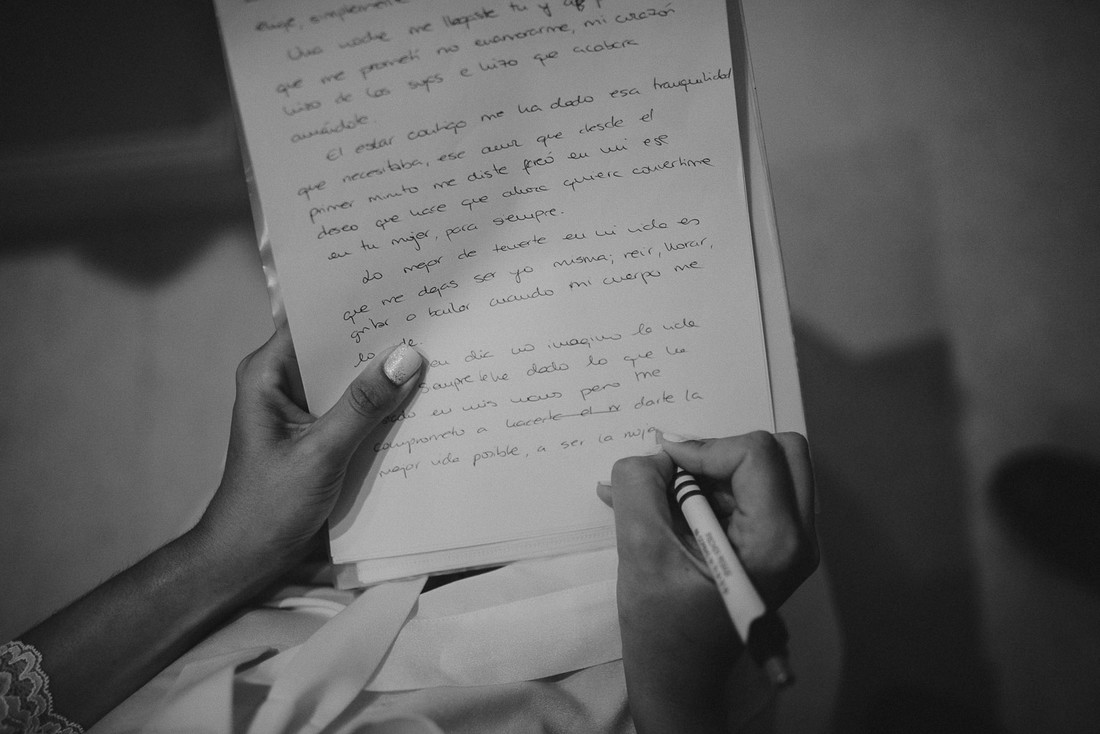 elige, simplemente
Una noche me llegaste tu y
que me prometí no enamorarme, mi corazón
hizo de las suyas e hizo que acabara
amándote.
El estar contigo me ha dado esa tranquilidad
que necesitaba, ese amor que desde el
primer minuto me diste forjó en mi ese
deseo que hace que ahora quiera convertirme
en tu mujer, para siempre.
Lo mejor de tenerte en mi vida es
que me dejas ser yo misma; reir, llorar,
gritar o bailar cuando mi cuerpo me
lo
en dia no imagino la vida
siempre te he dado lo que ha
en mis manos pero me
comprometo a hacerte el darte la
mejor vida posible, a ser la mujer